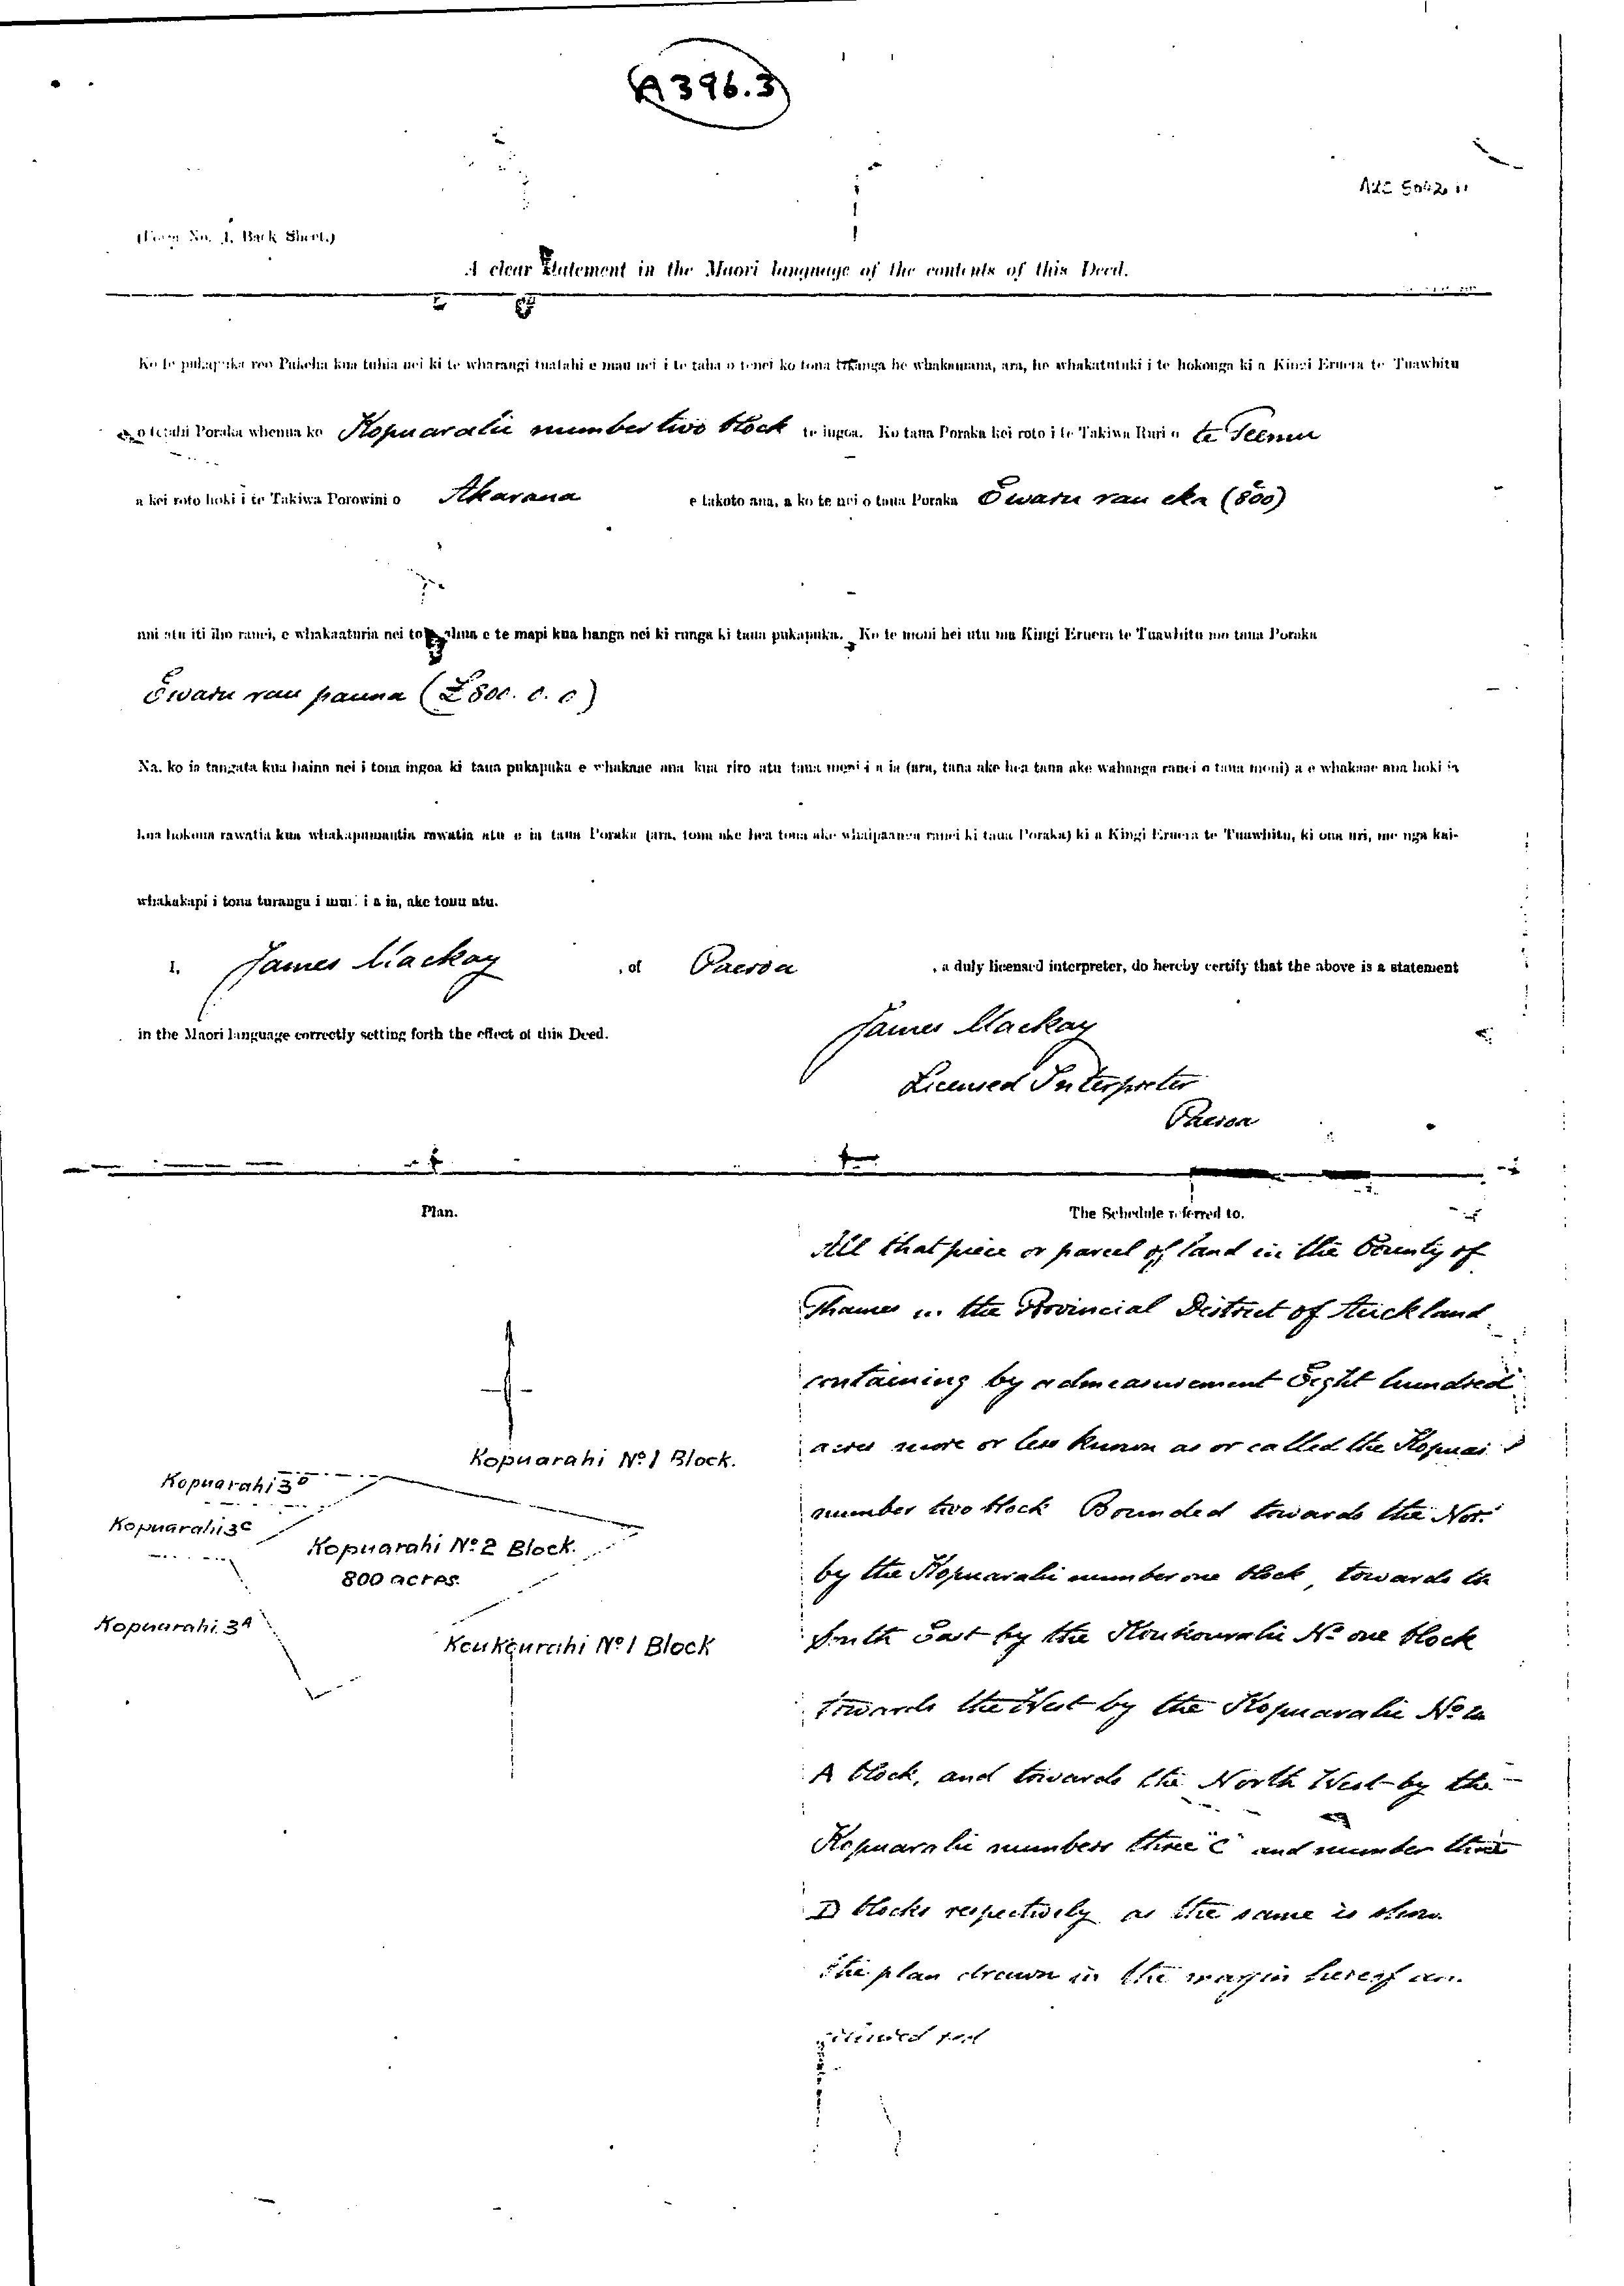 A396.3
(Form No. 1. Back Sheet.)
A clear Statement in the Maori language of the contents of this Deed.
Ko te pukapuka reo Pakeha kua tuhia nei ki te wharangi tuatahi e mau nei i te taha o tenei ko tona tikanga he whakamana, ara, he whakatutuki i te hokonga ki a Kingi Eruera te Tuawhitu
o tetahi Poraka whenua ko Kopuarahi number two block te ingoa. Ko taua Poraka kei roto i te Takiwa Ruri o te
a kei roto hoki i te Takiwa Porowini o Akarana e takoto ana, a ko te nui o taua Poraka E waru rau eka (800)
nui atu iti iho ranei, e whakaaturia nei e te mapi kua hanga nei ki runga ki taua pukapuka. Ko te moni hei utu ma Kingi Eruera te Tuawhitu mo taua Poraka
E waru rau pauna (£800. 0. 0)
Na, ko ia tangata kua haina nei i tona ingoa ki taua pukapuka e whakaae ana kua riro atu taua moni i a ia (ara, tana ake hea tana ake wahanga ranei o taua moni) a e whakaae ana hoki ia
kua hokona rawatia kua whakapumautia rawatia atu e ia taua Poraka (ara, tona ake hea tona ake whaipaanga ranei ki taua Poraka) ki a Kingi Eruera te Tuawhitu, ki ona uri, me nga kai-
whakakapi i tona turanga i muri i a ia, ake tonu atu.
I, James Mackay, of Paeroa, a duly licensed interpreter, do hereby certify that the above is a statement
in the Maori language correctly setting forth the effect of this Deed.
James Mackay
Licensed Interpreter
Paeroa
Plan.
Kopuarahi No 1 Block.
Kopuarahi 3D
Kopuarahi 3C
Kopuarahi No 2 Block.
800 acres.
Kopuarahi 3A
Koukourahi No 1 Block
The Schedule referred to.
All that piece or parcel of land in the County of
Thames in the Provincial District of Auckland
containing by admeasurement Eight hundred
acres more or less known as or called the
number two block Bounded towards the
by the Kopuarahi number one block, towards the
South East by the Koukourahi No one block
towards the West by the Kopuarahi No
A block, and towards the North West by the
Kopuarahi numbers three "C" and number three
D blocks respectively as the same is
the plan drawn in the margin hereof
red